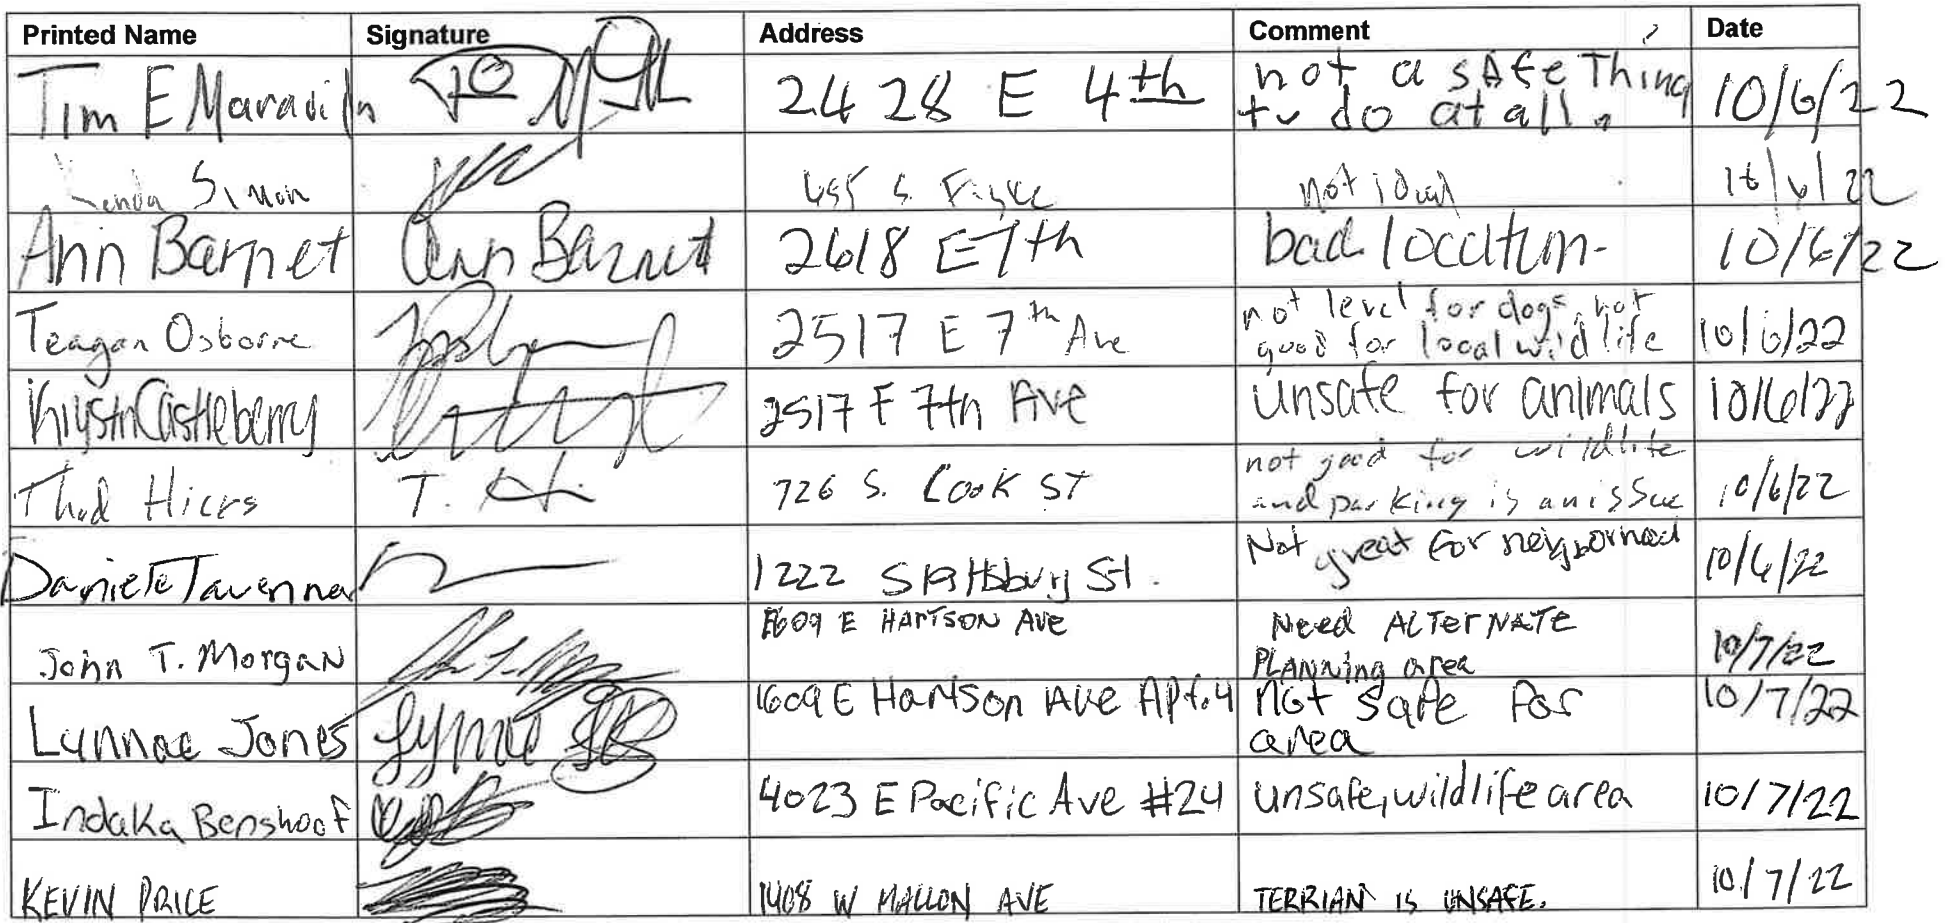 Printed Name Signature Address Comment Date
Tim E 2428 E 4th not a safe Thing 10/6/22
to do at all.
Simon S. not 10/6/22
Ann Barnet Ann Barnet 2618 E 7th bad location 10/6/22
Teagan Osborne 2517 E 7th Ave not level for dogs, not 10/6/22
good for local wildlife
Krystn Castleberry 2517 E 7th Ave unsafe for animals 10/6/22
T. 726 S. Cook ST not good for wildlife 10/6/22
and parking is an issue
Tavenner 1222 S St. Not great for 10/6/22
John T. Morgan 1609 E HARTSON AVE Need ALTERNATE 10/7/22
PLANNING area
Lynnae Jones 1609 E Hartson Ave Apt. 4 not safe for 10/7/22
area
Indaka Benshoof 4023 E Pacific Ave #24 unsafe, wildlife area 10/7/22
KEVIN PRICE 1408 W MALLON AVE TERRIAN IS UNSAFE. 10/7/22